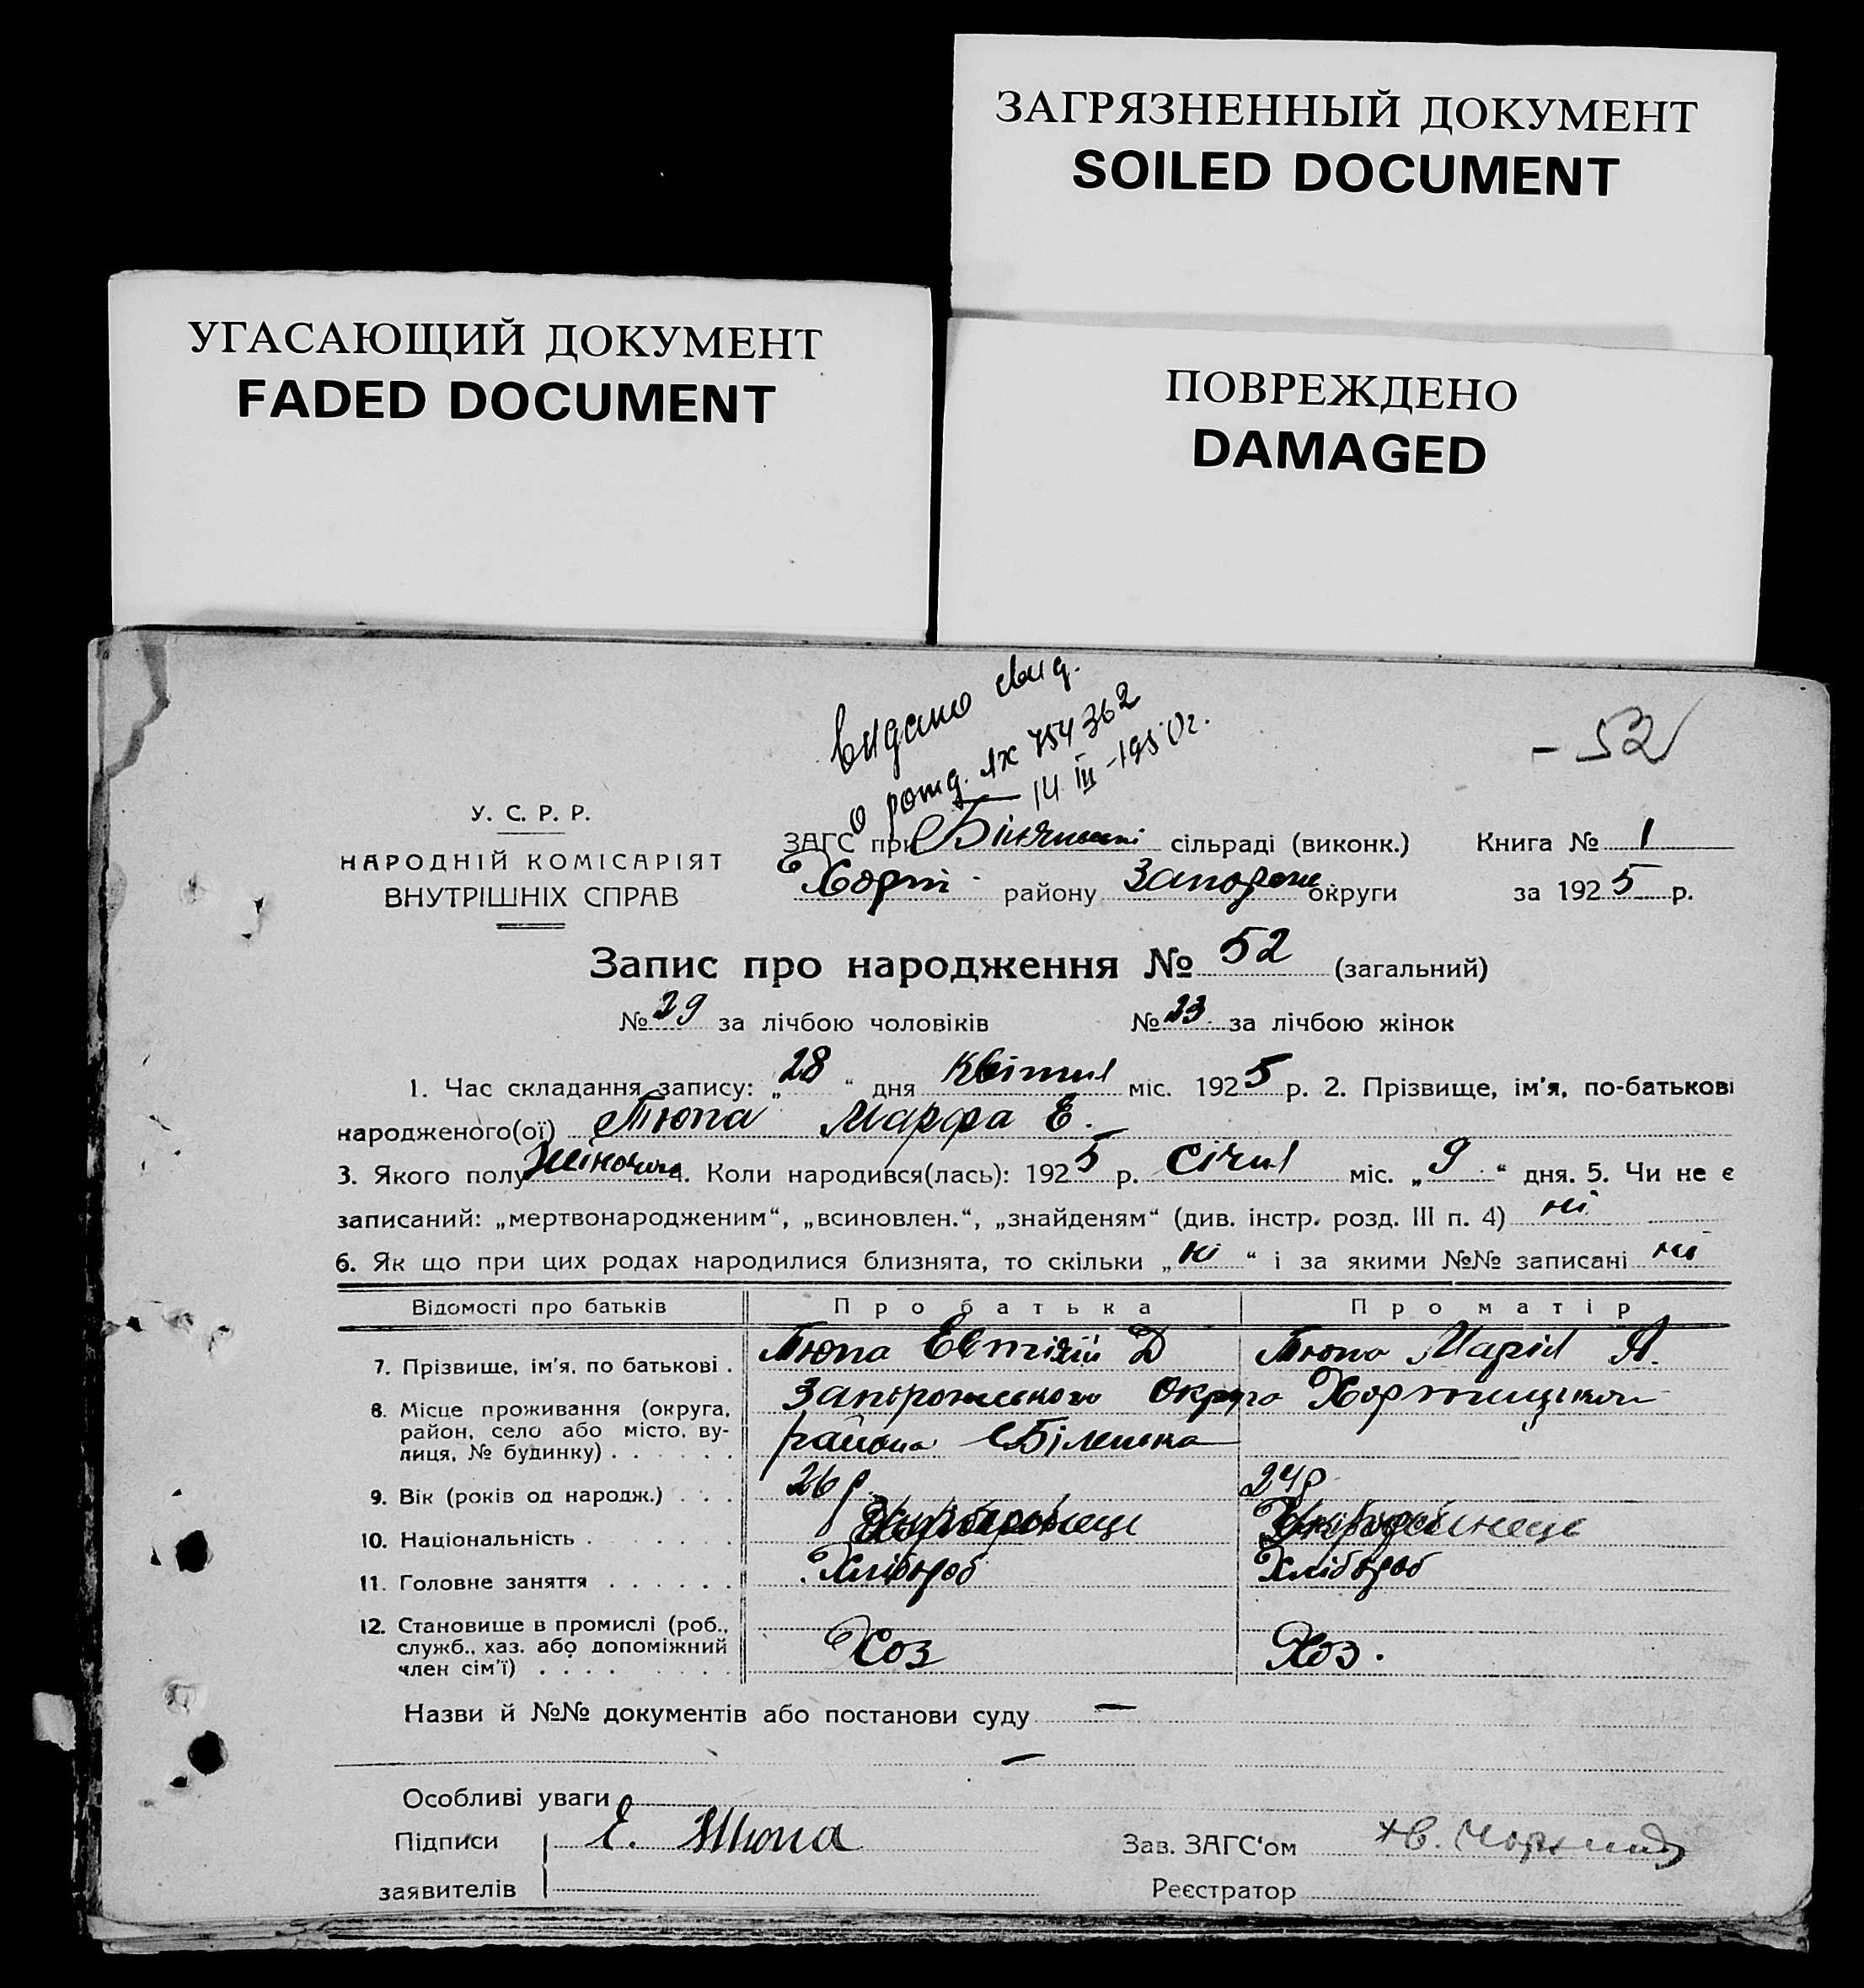 ЗАГРЯЗНЕННЫЙ ДОКУМЕНТ
SOILED DOCUMENT
УГАСАЮЩИЙ ДОКУМЕНТ
FADED DOCUMENT
ПОВРЕЖДЕНО
DAMAGED
видано свид.
о рожд. 754362
14 III-1950г.
- 52
У. С. Р. Р.
НАРОДНІЙ КОМІСАРІЯТ
ВНУТРІШНІХ СПРАВ
ЗАГС при сільраді (виконк.) Книга № 1
Хорт. району Запорож. округи за 1925 р.
Запис про народження № 52 (загальний)
№ 29 за лічбою чоловіків № 23 за лічбою жінок
1. Час складання запису: „28“ дня Квітня міс. 1925 р. 2. Прізвище, ім'я, по-батькові
народженого(ої) Тюпа Марфа Е.
3. Якого полу жіночого 4. Коли народився(лась): 1925 р. січня міс. „9“ дня. 5. Чи не є
записаний: „мертвонародженим“, „всиновлен.“, „знайденям“ (див. інстр. розд. III п. 4) ні
6. Як що при цих родах народилися близнята, то скільки „ні“ і за якими №№ записані ні
Відомості про батьків Про батька Про матір
7. Прізвище, ім'я, по батькові . Тюпа Евтіхій Д Тюпа Марія А.
8. Місце проживання (округа, Запорожського Округа Хортицького
район, село або місто, ву- района с Біленька
лиця, № будинку) . . . . . .
9. Вік (років од народж.) . . . 26 р. 24 р.
10. Національність . . . . . . .
11. Головне заняття . . . . . . Хлібороб Хлібороб
12. Становище в промислі (роб.,
служб., хаз. або допоміжний Хоз Хоз.
член сім'ї) . . . . . . . . .
Назви й №№ документів або постанови суду —
—
Особливі уваги
Підписи Е. Тюпа Зав. ЗАГС'ом
заявителів Реєстратор